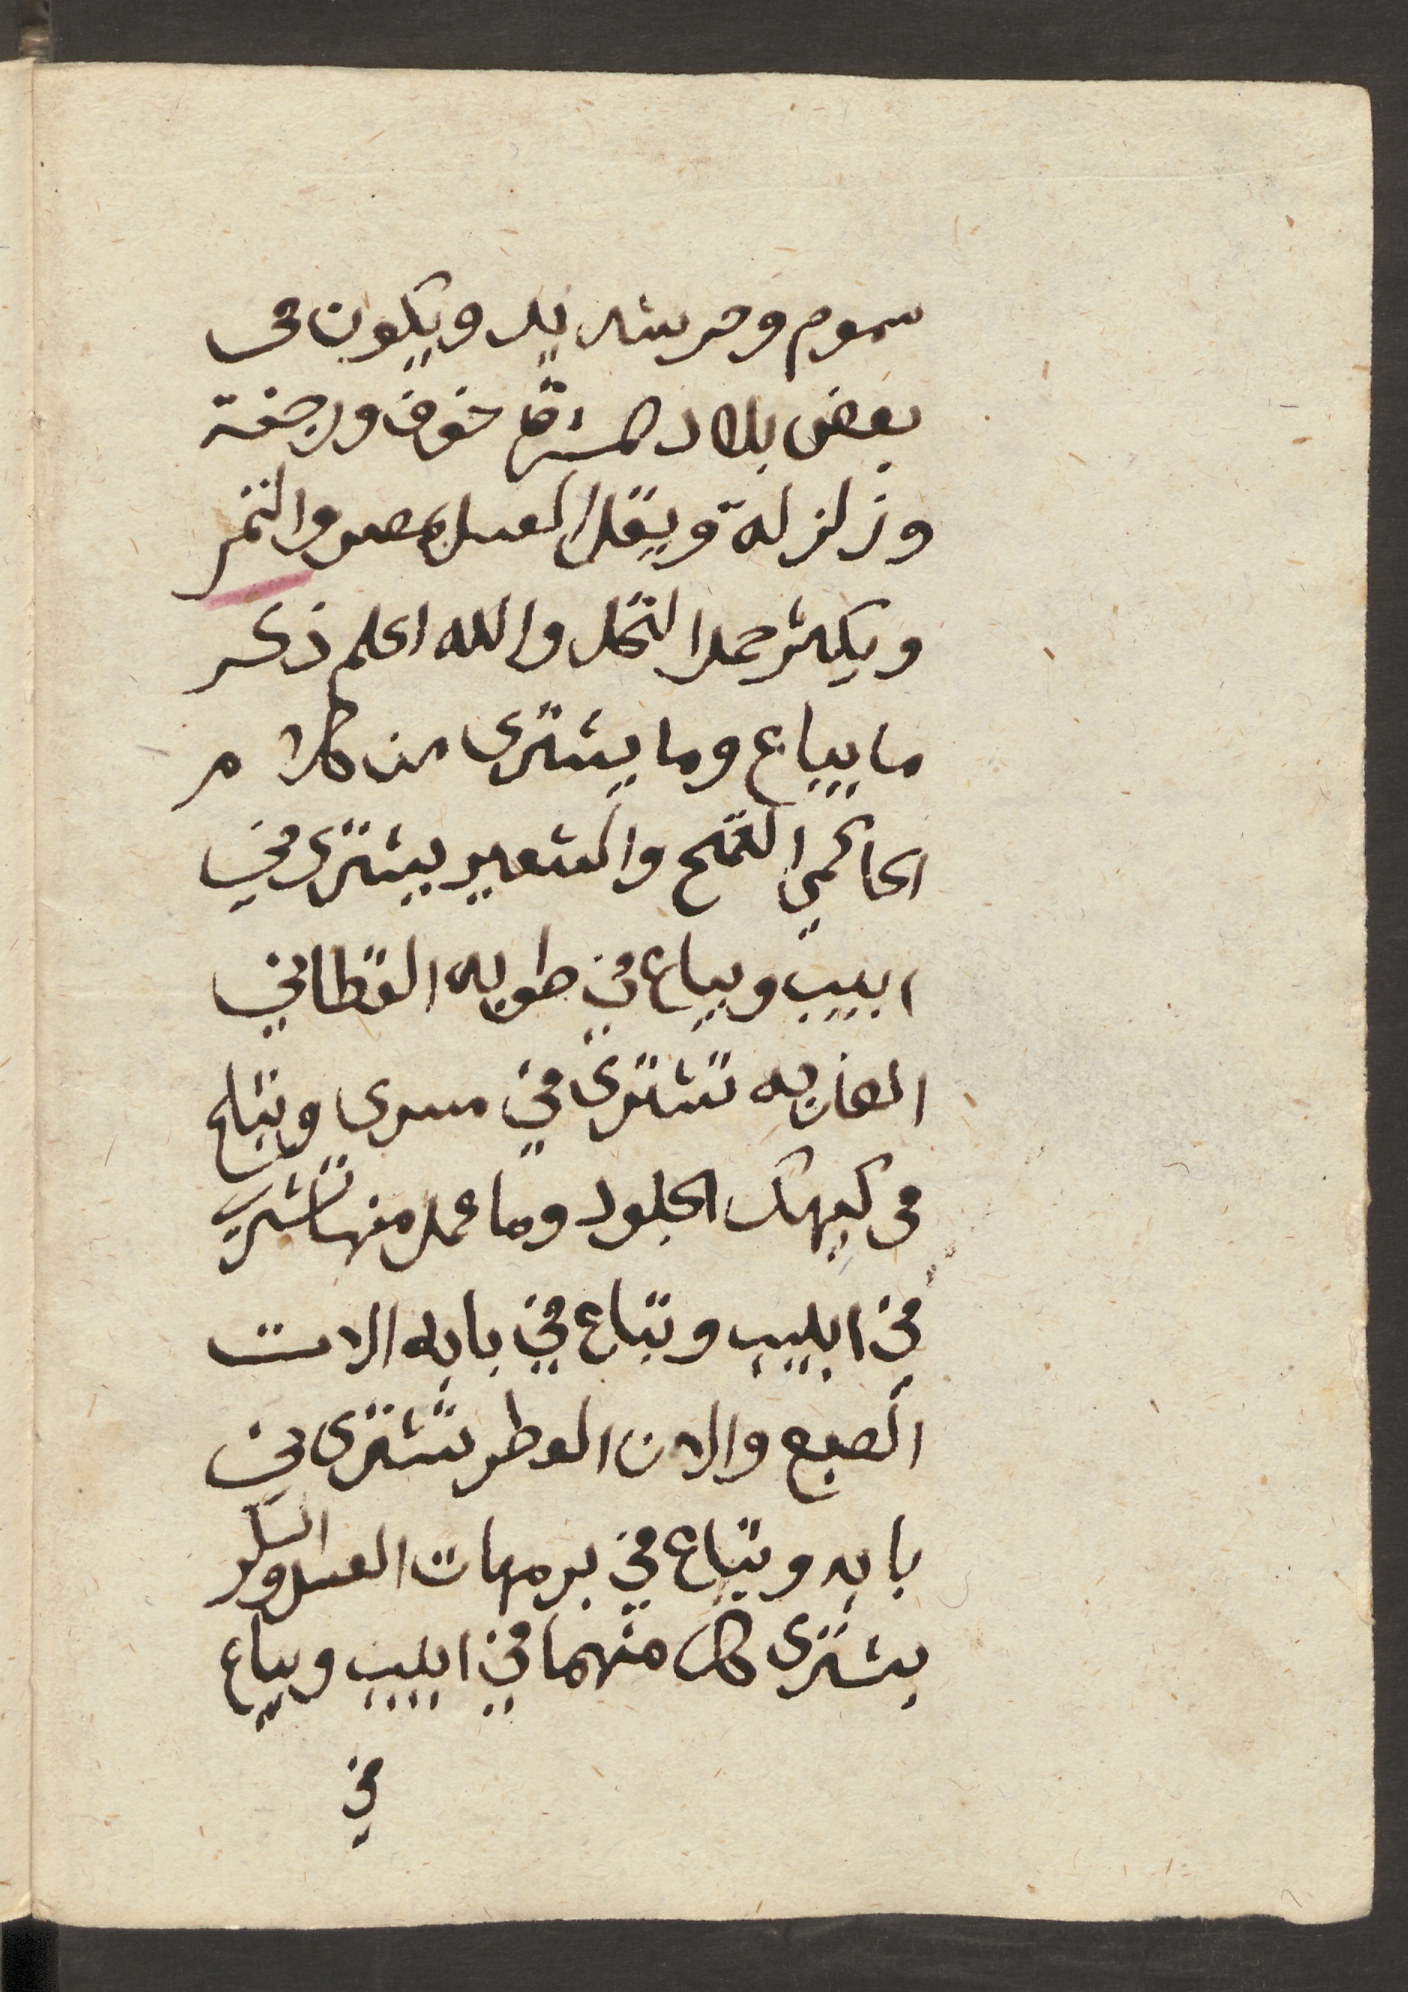 سموم وحر شديد ويكون فى
بعض بلاد المشرق خوف ورجفة
وزلزلة ويقل العسل بمصر والتمر
ويكثر حمل النخل والله اعلم ذكر
ما يباع وما يشترى من كلام
الحاكمي القمح والشعير يشترى في
ابيب ويباع في طوبه القطاني
تشترى في مسرى وتباع
فى كيهك الجلود وما عمل منها تشترى
في ابيب وتباع في بابه الات
الصبغ والات العطر تشترى في
بابه وتباع في برمهات العسل والسكر
يشترى كل منهما في ابيب ويباع
في